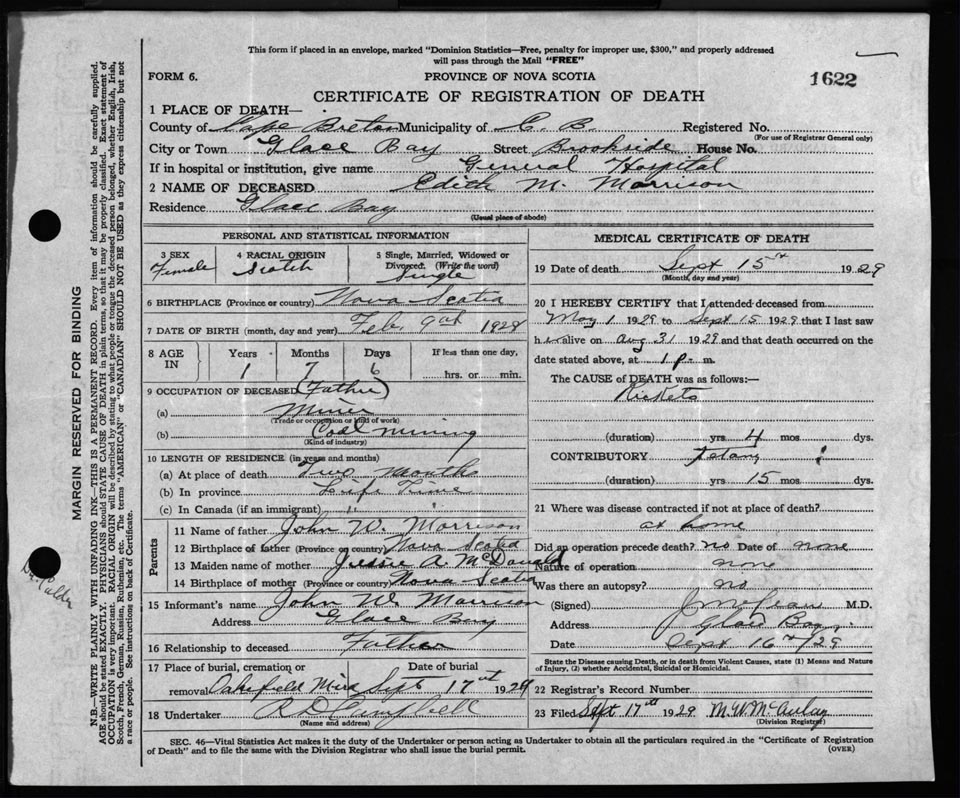 This form if placed in an envelope, marked "Dominion Statistics—Free, penalty for improper use, $300," and properly addressed
will pass through the Mail "FREE"
FORM 6. PROVINCE OF NOVA SCOTIA 1622
CERTIFICATE OF REGISTRATION OF DEATH
1 PLACE OF DEATH—
County of Cape Breton Municipality of C. B. Registered No.
(For use of Registrar General only)
City or Town Glace Bay Street Brookside House No.
If in hospital or institution, give name General Hospital
2 NAME OF DECEASED Edith M. Morrison
Residence Glace Bay
(Usual place of abode)
PERSONAL AND STATISTICAL INFORMATION
3 SEX Female
4 RACIAL ORIGIN Scotch
5 Single, Married, Widowed or
Divorced. (Write the word)
Single
6 BIRTHPLACE (Province or country) Nova Scotia
7 DATE OF BIRTH (month, day and year) Feb. 9th 1928
8 AGE IN Years Months Days If less than one day,
1 7 6 hrs. or min.
9 OCCUPATION OF DECEASED (Father)
(a) Miner
(Trade or occupation or kind of work)
(b) Coal mining
(Kind of industry)
10 LENGTH OF RESIDENCE (in years and months)
(a) At place of death Two months
(b) In province Life Time
(c) In Canada (if an immigrant) " "
Parents
11 Name of father John W. Morrison
12 Birthplace of father (Province or country) Nova Scotia
13 Maiden name of mother Jessie A. McDonald
14 Birthplace of mother (Province or country) Nova Scotia
15 Informant's name John W. Morrison
Address Glace Bay
16 Relationship to deceased Father
17 Place of burial, cremation or Date of burial
removal Oakfield Mira Sept 17th 1929
18 Undertaker R D Campbell
(Name and address)
MEDICAL CERTIFICATE OF DEATH
19 Date of death Sept 15th 1929
(Month, day and year)
20 I HEREBY CERTIFY that I attended deceased from
May 1 1929 to Sept 15 1929 that I last saw
her alive on Aug 31 1929 and that death occurred on the
date stated above, at 1 p. m.
The CAUSE of DEATH was as follows:
Rickets
(duration) yrs 4 mos dys.
CONTRIBUTORY
(duration) yrs 15 mos dys.
21 Where was disease contracted if not at place of death?
at home
Did an operation precede death? no Date of none
Nature of operation none
Was there an autopsy? no
(Signed) M.D.
Address Glace Bay
Date Sept 16th/29
State the Disease causing Death, or in death from Violent Causes, state (1) Means and Nature
of Injury, (2) whether Accidental, Suicidal or Homicidal.
22 Registrar's Record Number
23 Filed Sept 17th 1929 M. W. McAulay
(Division Registrar)
SEC. 46—Vital Statistics Act makes it the duty of the Undertaker or person acting as Undertaker to obtain all the particulars required in the "Certificate of Registration
of Death" and to file the same with the Division Registrar who shall issue the burial permit. (OVER)
MARGIN RESERVED FOR BINDING
N.B.—WRITE PLAINLY WITH UNFADING INK—THIS IS A PERMANENT RECORD. Every item of information should be carefully supplied.
AGE should be stated EXACTLY. PHYSICIANS should STATE CAUSE OF DEATH in plain terms, so that it may be properly classified. Exact statement of
OCCUPATION is very important. RACIAL ORIGIN will be described by stating to what people or tongue the deceased person belonged, whether English, Irish,
Scotch, French, German, Russian, Ruthenian, etc. The terms "AMERICAN" or "CANADIAN" SHOULD NOT BE USED as they express citizenship but not
a race or people. See instructions on back of Certificate.